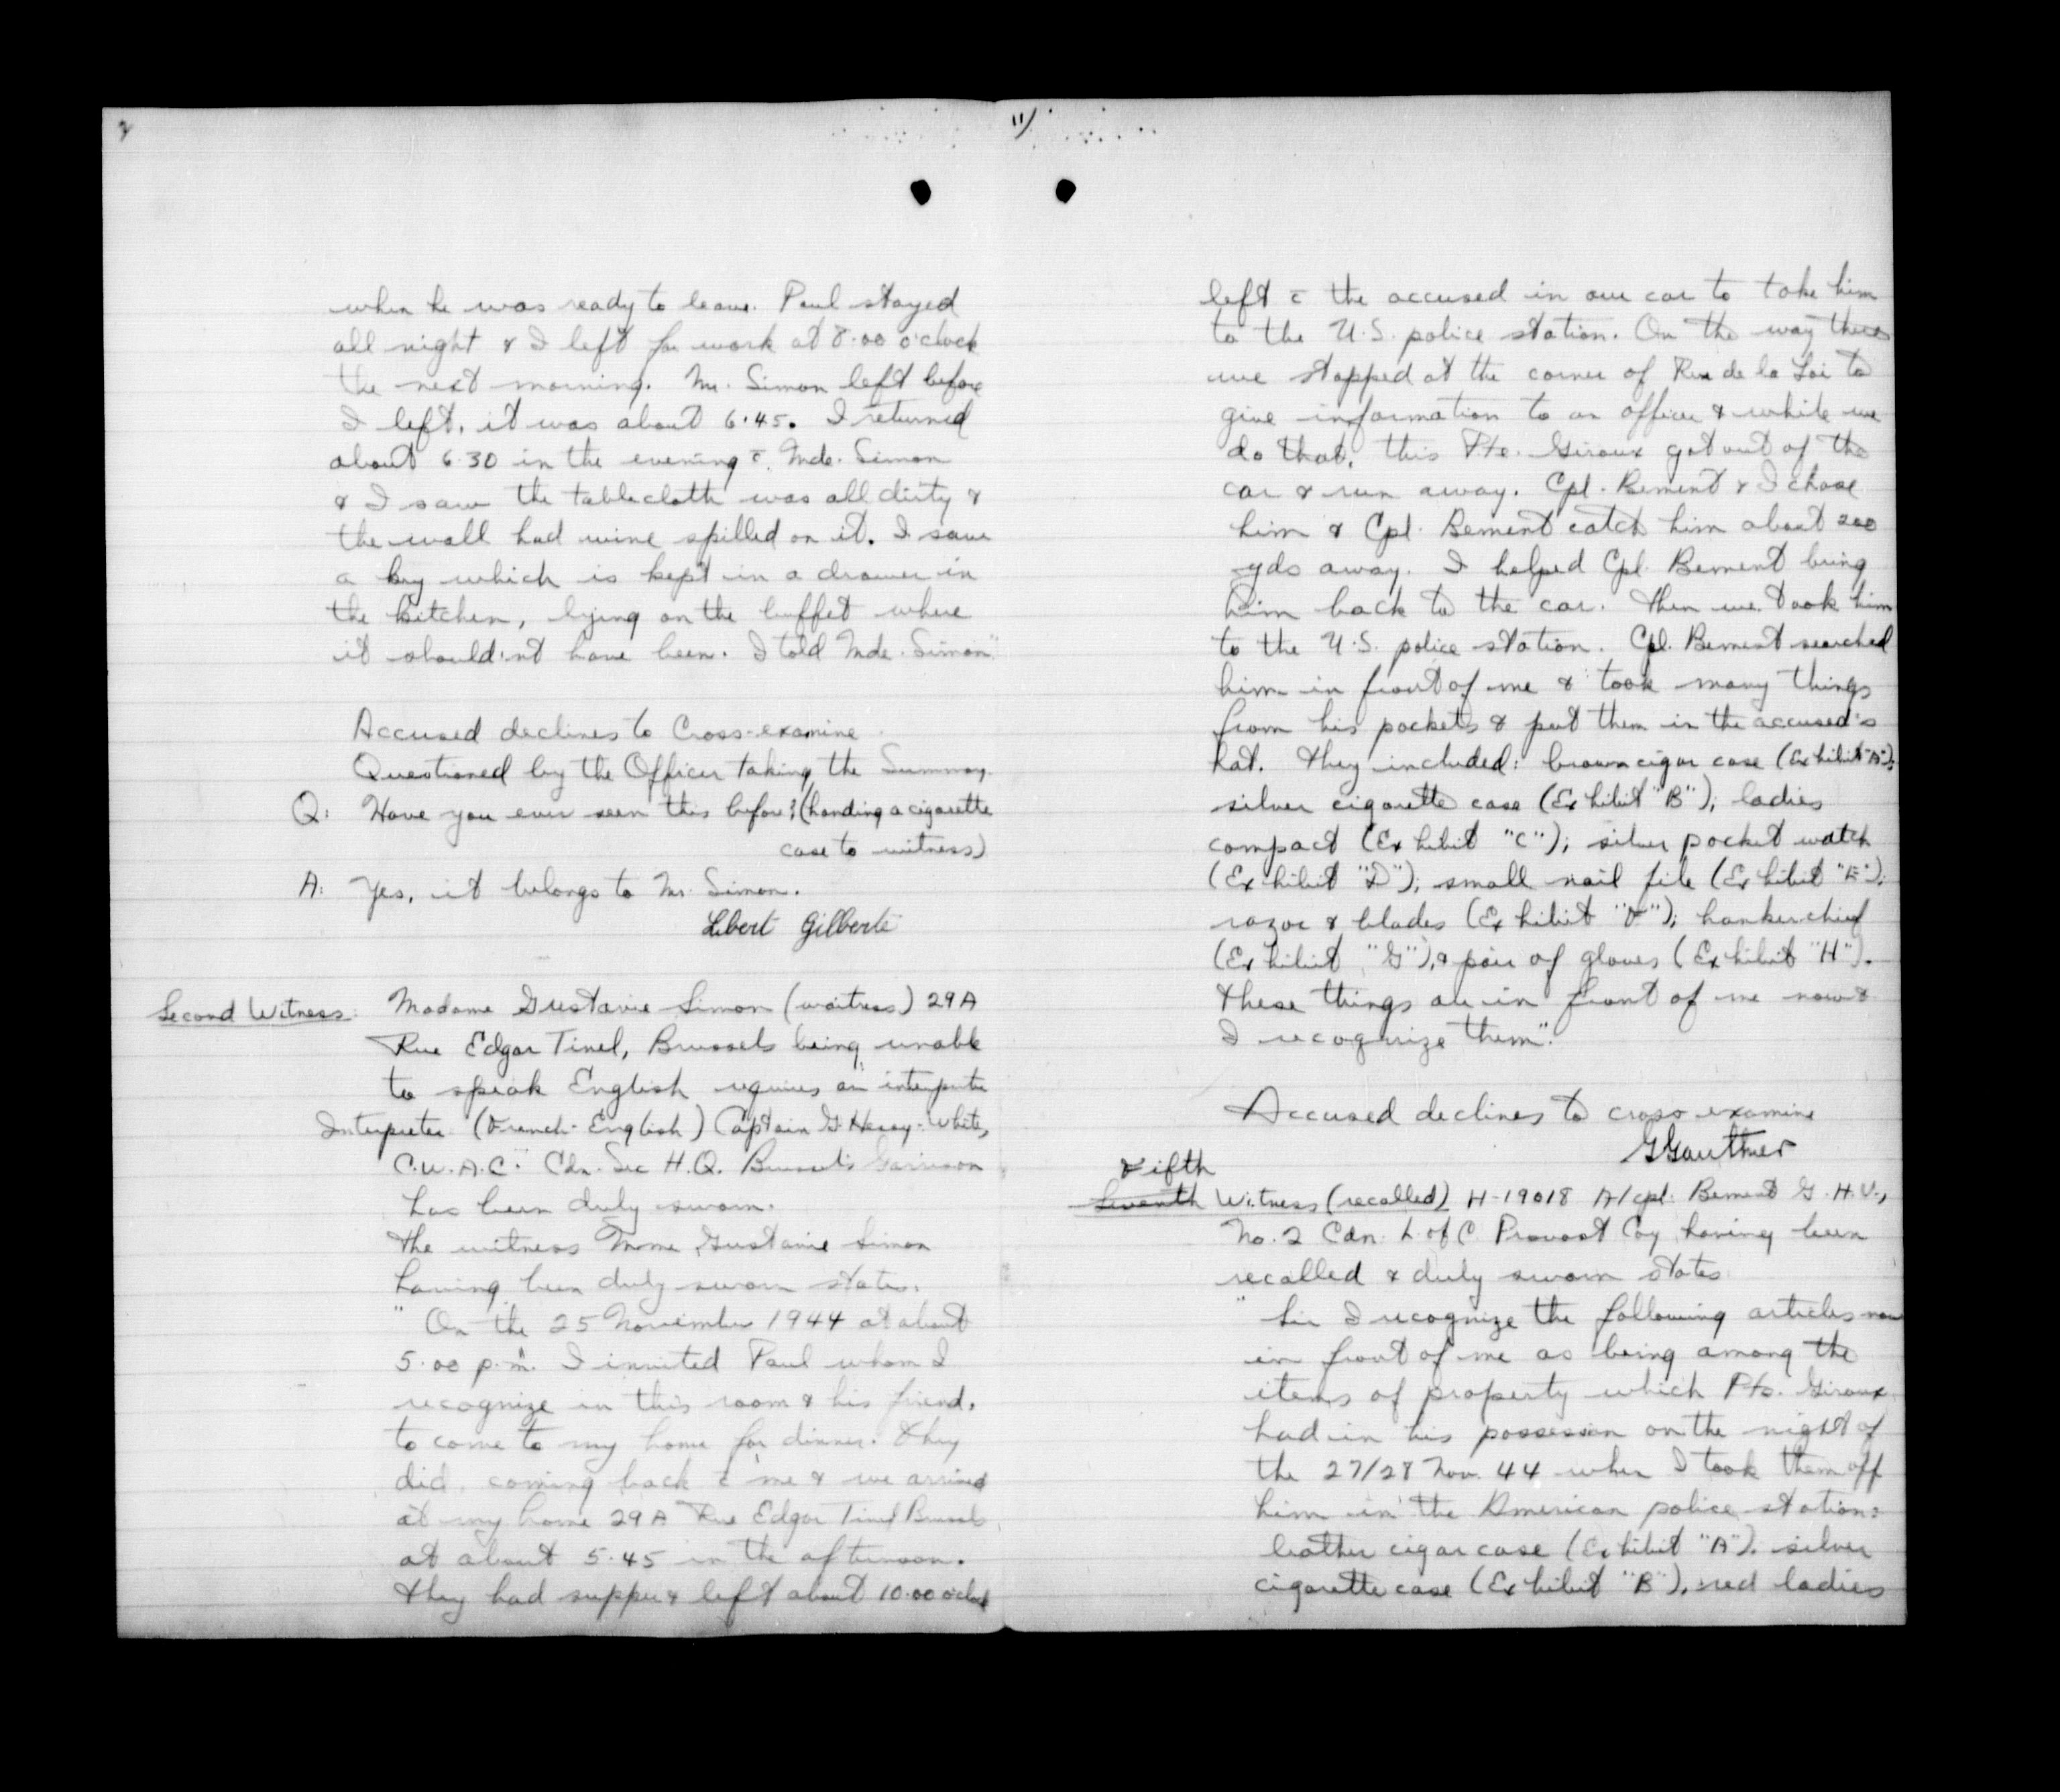 2
when he was ready to leave. Paul stayed
all night & I left for work at 8.00 o'clock
the next morning. Mr. Simon left before
I left, it was about 6.45. I returned
about 6.30 in the evening c̄ Mde. Simon
& I saw the tablecloth was all dirty &
the wall had wine spilled on it. I saw
a key which is kept in a drawer in
the kitchen, lying on the buffet where
it should'nt have been. I told Mde. Simon"
Accused declines to Cross-examine
Questioned by the Officer taking the Summary.
Q: Have you ever seen this before? (handing a cigarette
case to witness)
A: Yes, it belongs to Mr. Simon.
Libert Gilberte
Second Witness: Madame Gustavie Simon (waitress) 29A
Rue Edgar Tinel, Brussels being unable
to speak English requires an interpreter
Interpreter (French-English) Captain G. -White,
C.W.A.C. Cdn. Sec H.Q. Brussels Garrison
has been duly sworn.
The witness Mme Gustavie Simon
having been duly sworn states:
" On the 25 November 1944 at about
5.00 p.m. I invited Paul whom I
recognize in this room & his friend,
to come to my home for dinner. They
did, coming back c̄ me & we arrived
at my home 29A Rue Edgar Tinel Brussels
at about 5.45 in the afternoon.
They had supper & left about 10.00 o'clock
11)
left c̄ the accused in our car to take him
to the U.S. police station. On the way there
we stopped at the corner of Rue de la Loi to
give information to an officer & while we
do that, this Pte. Giroux got out of the
car & run away. Cpl. Bement & I chase
him & Cpl. Bement catch him about 200
yds away. I helped Cpl. Bement bring
him back to the car. Then we took him
to the U.S. police station. Cpl. Bement searched
him in front of me & took many things
from his pockets & put them in the accused's
hat. They included: brown cigar case (Exhibit "A");
silver cigarette case (Exhibit "B"); ladies
compact (Exhibit "C"); silver pocket watch
(Exhibit "D"); small nail file (Exhibit "E");
razor & blades (Exhibit "F"); hankerchief
(Exhibit "G"), & pair of gloves (Exhibit "H").
These things are in front of me now &
I recognize them".
Accused declines to cross-examine
G Gauthier
Fifth
Seventh Witness (recalled) H-19018 A/cpl. Bement G.H.V.,
No. 2 Cdn. L of C Provost Coy, having been
recalled & duly sworn states
" Sir I recognize the following articles now
in front of me as being among the
items of property which Pte. Giroux
had in his possession on the night of
the 27/28 Nov. 44 when I took them off
him in the American police station:
leather cigar case (Exhibit "A"), silver
cigarette case (Exhibit "B"), red ladies